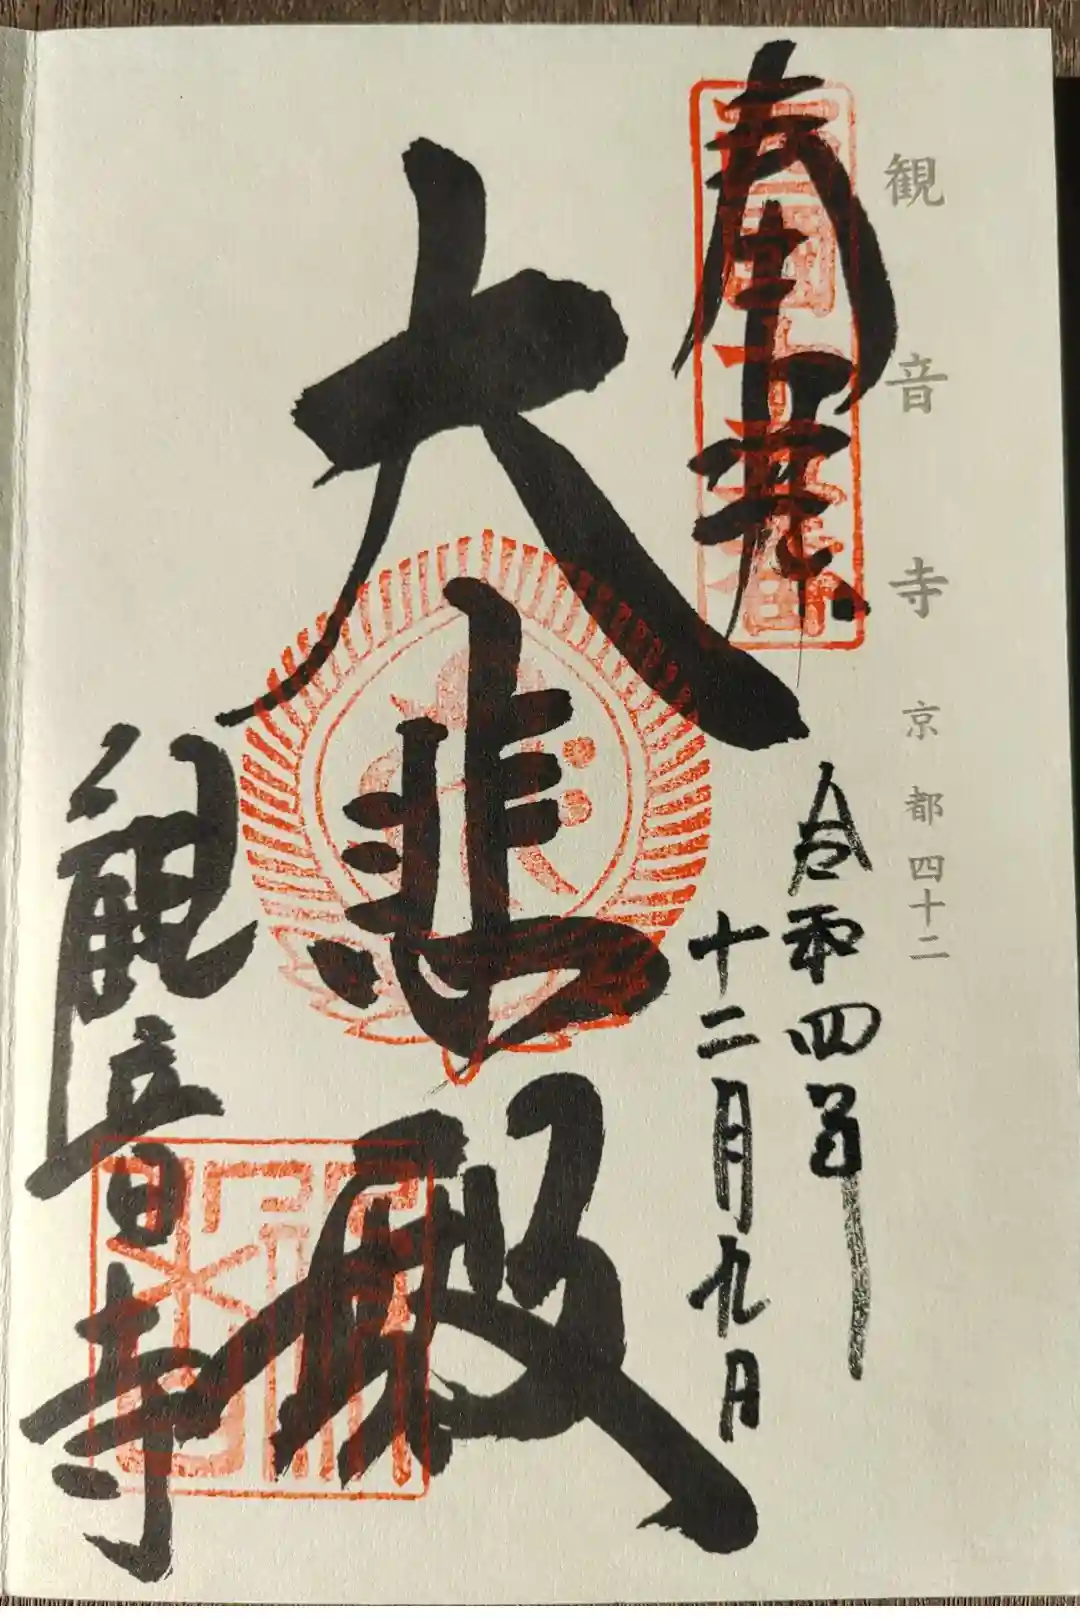 観音寺 京都四十二
奉拝
西国十五番
令和四年
十二月九日
大悲殿
観音寺